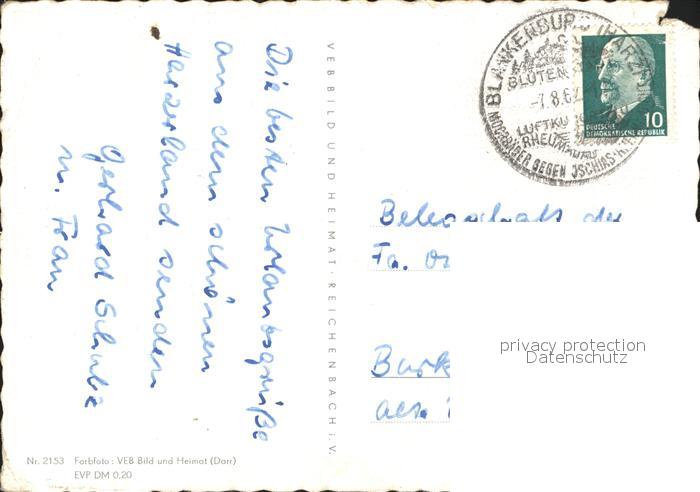 Die besten Urlaubsgrüße
aus dem schönen
Harzerland senden
Gerhard Schulz
u. Frau
VEB BILD UND HEIMAT · REICHENBACH i. V.
Nr. 2153 Farbfoto: VEB Bild und Heimat (Darr)
EVP DM 0,20
BLANKENBURG (HARZ)
BLÜTEN
-7.8.62
LUFTKU
RHEUMABAD
MOORBÄDER GEGEN ISCHIAS
10
DEUTSCHE
DEMOKRATISCHE REPUBLIK
Belegschaft der
Fa.
privacy protection
Datenschutz